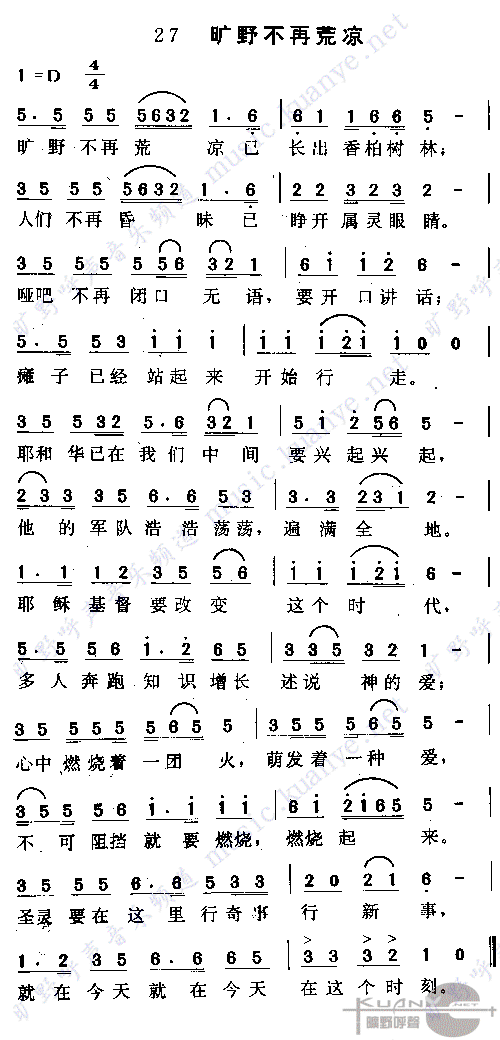 27 旷野不再荒凉
1=D 4/4
5. 5 5 5 5632 1. 6 | 6 1 1 6 6 5 -
旷野不再荒 凉已 长出香柏树林;
3 5 5 5 5632 1. 6 | 2 2 3 2 3 5 -
人们不再昏 昧已 睁开属灵眼睛。
3 5 5 5 5 56 321 | 6 i i 2 i 6 -
哑吧不再闭口 无语,要开口讲话;
5. 5 5 3 i i i i | i i i i 2 i 0 0
瘫子已经站起来 开始行 走。
3 5 532 5. 6 321 | 5 i 2 5 6 5 -
耶和华已在我们中间 要兴起兴起,
23 3 3 5 6. 6 5 3 | 3. 3 2 3 1 2 -
他的军队浩浩荡荡,遍满全 地。
1. 1 1 2 3 5 5 6 | i i i 2 i 6 -
耶稣基督要改变 这个时 代,
5. 5 5 6 1. 2 6 5 | 3 5 3 2 1 -
多人奔跑知识增长 述说 神的爱;
3 5 5 5 5 56 5 5 | 3 5 5 5 5 6 5 5 -
心中燃烧着一团 火,萌发着一种 爱,
3 5 5 5 6 i. i i i | 6 i 2 i 6 5 5 -
不 可阻挡就要燃烧,燃烧起 来。
3 5 5 6 5 6 5 3 3 | 2 0 2 1 6 -
圣灵要在这里行奇事 行 新 事,
1. 2 3 5 6. 5 6 5 | 3 3 3 2 1 0
就在今天就在今天 在这个时刻。
旷野呼声音乐频道 music.kuanye.net
KUANYE.NET
旷野呼声